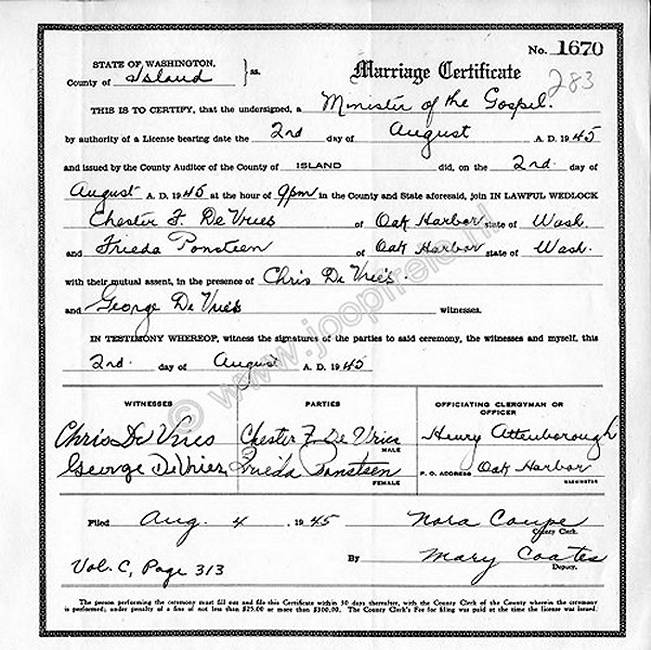 No. 1670
STATE OF WASHINGTON, } ss.
County of Island
Marriage Certificate
283
THIS IS TO CERTIFY, that the undersigned, a Minister of the Gospel.
by authority of a License bearing date the 2nd day of August A. D. 1945
and issued by the County Auditor of the County of ISLAND did, on the 2nd. day of
August A. D. 1945 at the hour of 9pm in the County and State aforesaid, join IN LAWFUL WEDLOCK
Chester F. De Vries of Oak Harbor state of Wash.
and Frieda Ponsteen of Oak Harbor state of Wash.
with their mutual assent, in the presence of Chris De Vries
and George De Vries witnesses.
IN TESTIMONY WHEREOF, witness the signatures of the parties to said ceremony, the witnesses and myself, this
2nd. day of August A. D. 1945
© www.joopifrele.nl
WITNESSES PARTIES OFFICIATING CLERGYMAN OR OFFICER
Chris De Vries Chester F. De Vries Henry Attenborough
MALE
George De Vries Frieda Ponsteen P. O. ADDRESS Oak Harbor
FEMALE WASHINGTON
Filed Aug. 4 1945 Nora Coupe
County Clerk.
Vol. C, Page 313 By Mary Coates
Deputy.
The person performing the ceremony must fill out and file this Certificate within 30 days thereafter, with the County Clerk of the County wherein the ceremony
is performed; under penalty of a fine of not less than $25.00 or more than $300.00. The County Clerk's Fee for filing was paid at the time the license was issued.